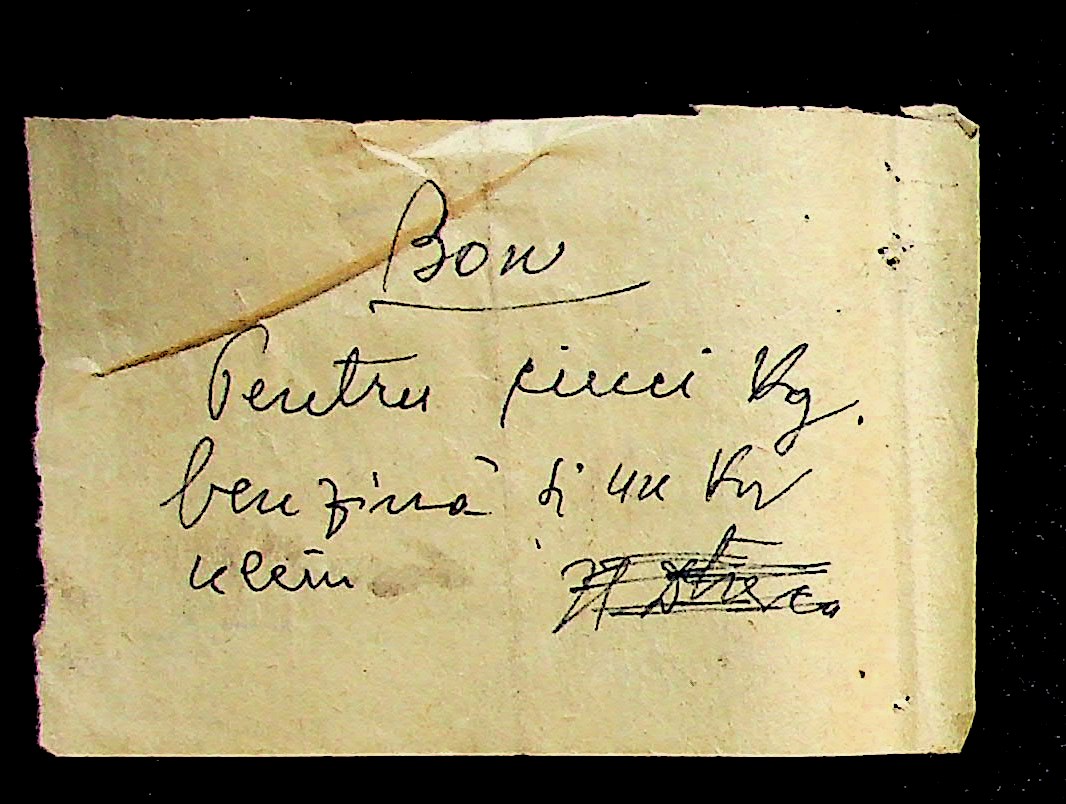 Bon
Pentru cinci Kg.
benzină și un Kg
uleiu